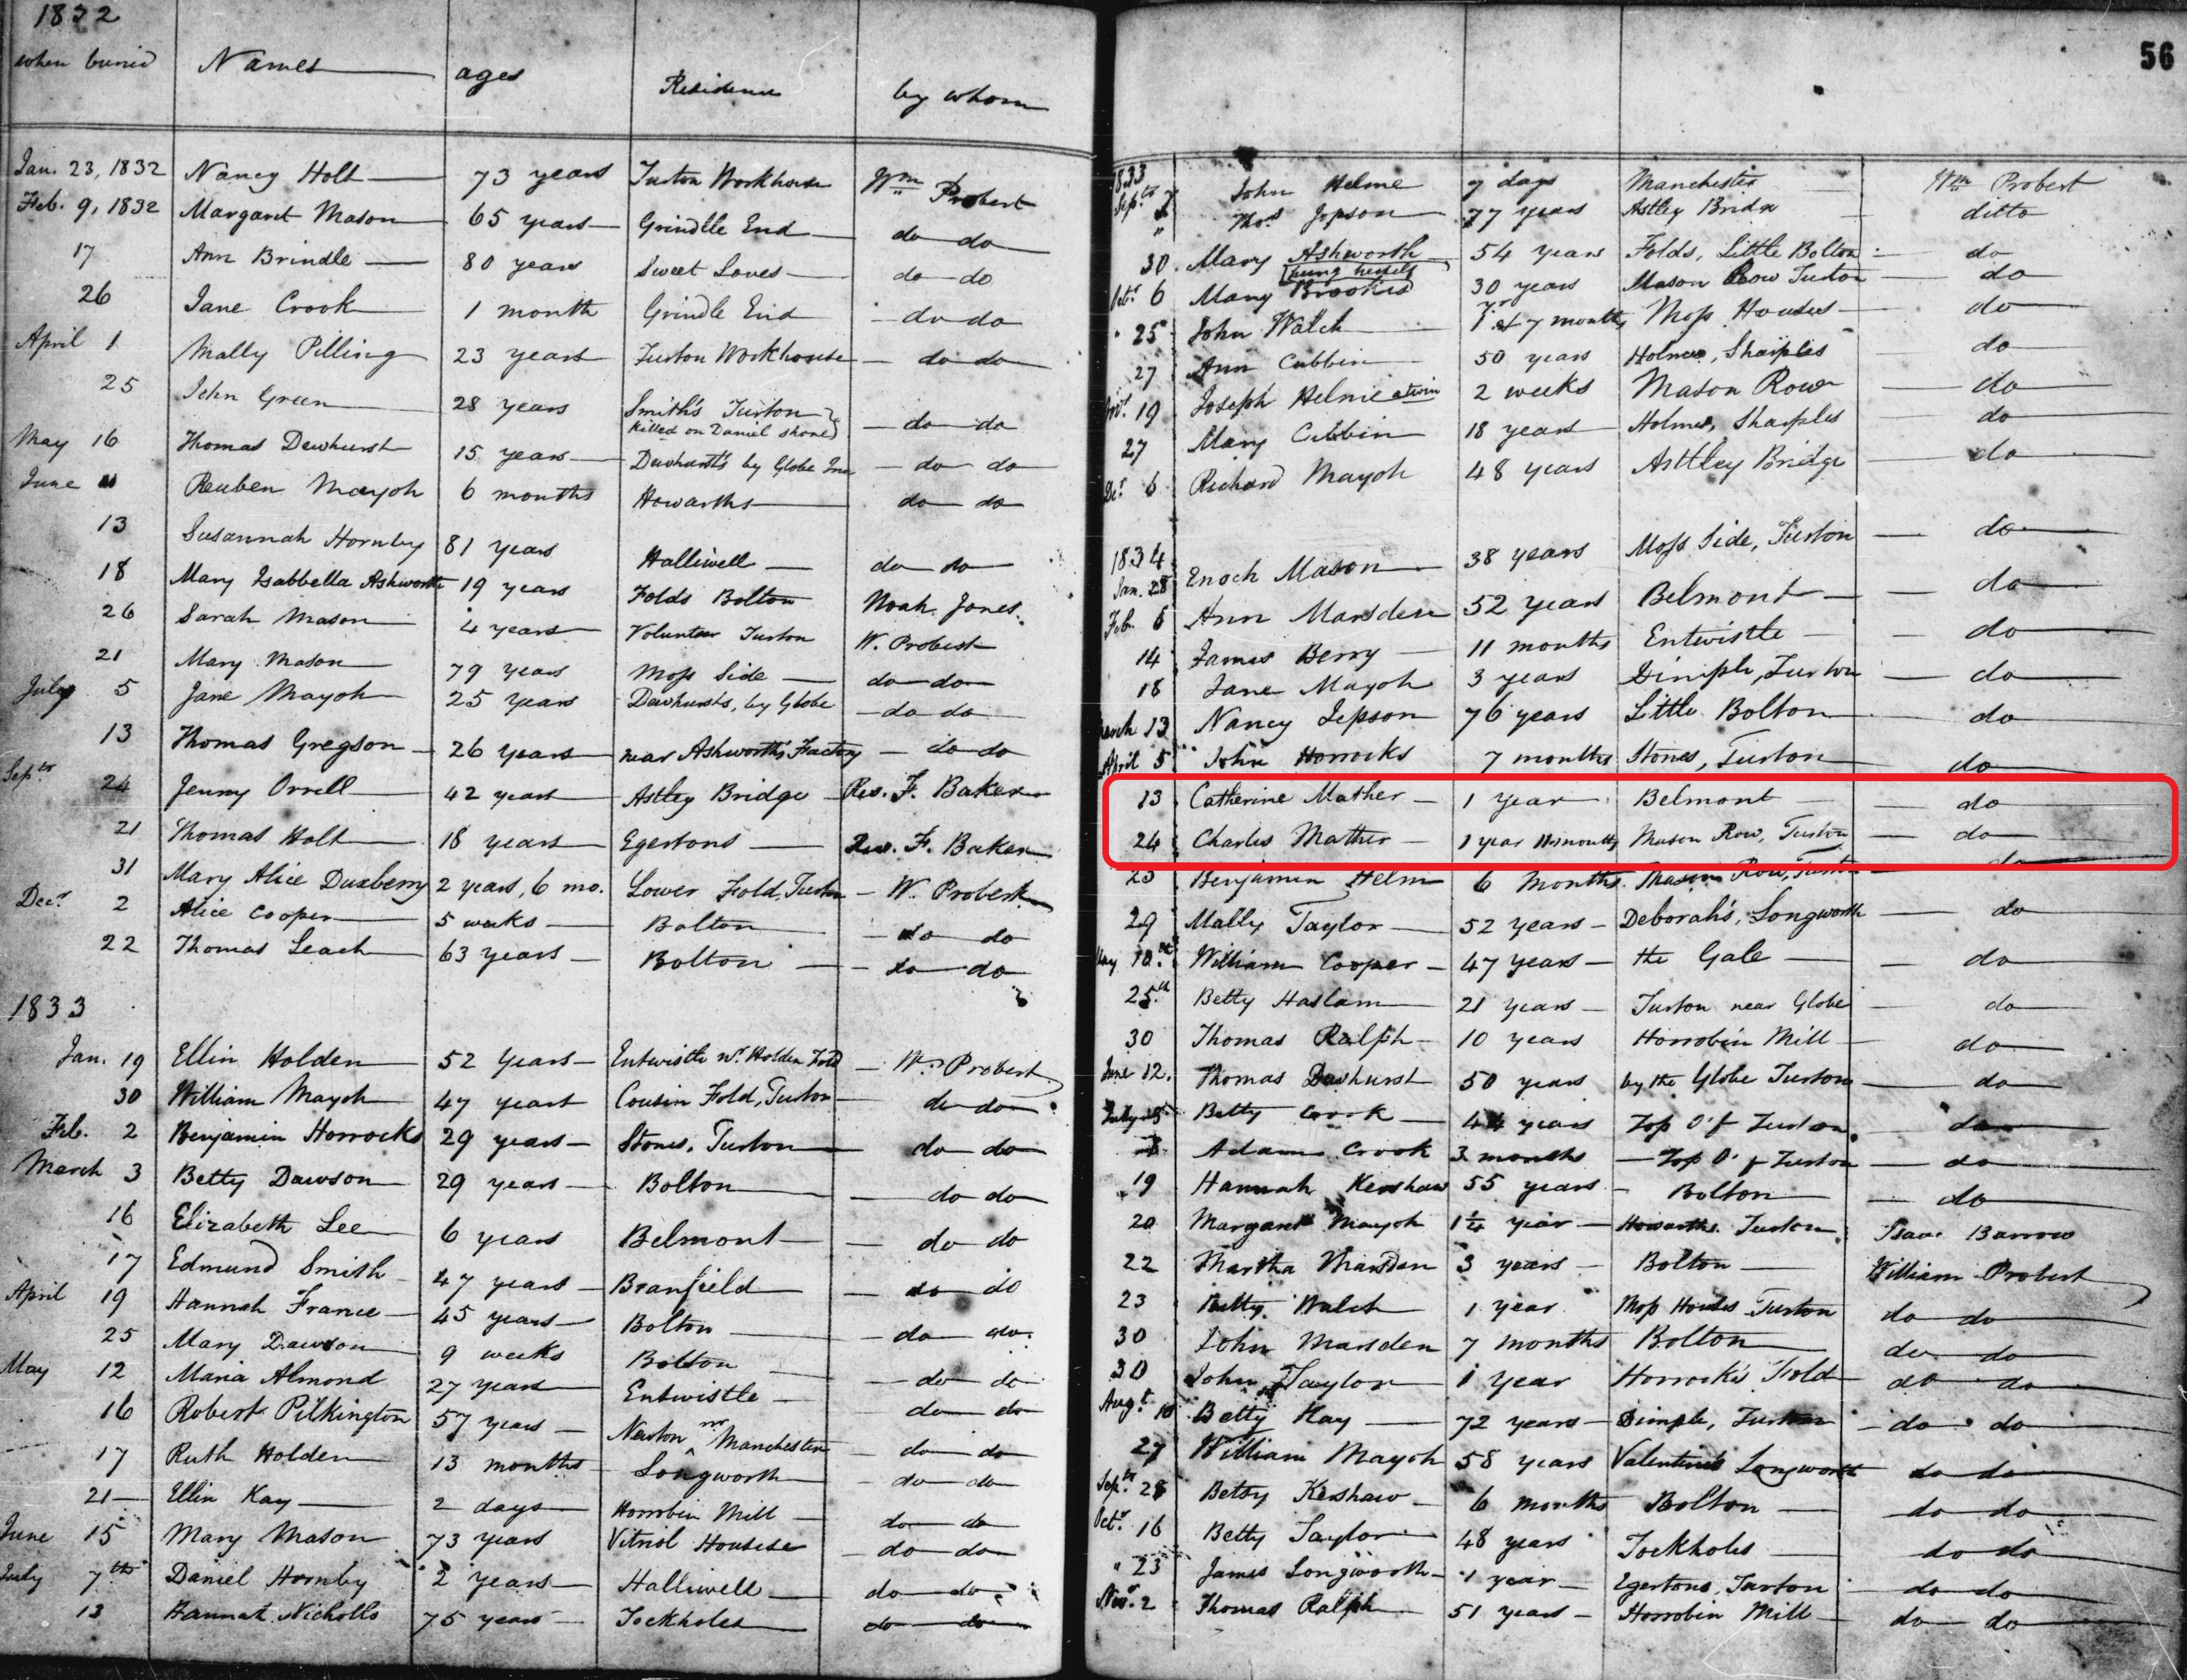 1832
when buried Names ages Residence by whom
Jan. 23, 1832 Nancy Holt 73 years Turton Workhouse Wm Probert
Feb. 9, 1832 Margaret Mason 65 years Grindlle End do do
17 Ann Brindle 80 years Sweet Loves do do
26 Jane Crook 1 month Grindle End do do
April 1 Mally Pilling 23 years Turton Workhouse do do
25 John Green 28 years Smith's Turton do do
killed on Daniel shore
May 16 Thomas Dewhurst 15 years Dewhurst's by Globe Inn do do
June Reuben Mayoh 6 months Howarths do do
13 Susannah Hornby 81 years Halliwell do do
18 Mary Isabbella Ashworth 19 years Folds Bolton Noah Jones
26 Sarah Mason 4 years Volunteer Turton W. Probert
21 Mary Mason 79 years Moss Side do do
July 5 Jane Mayoh 25 years Dewhursts, by Globe do do
13 Thomas Gregson 26 years near Ashworth's Factory do do
Septr 24 Jenny Orrell 42 years Astley Bridge Rev. F. Baker
21 Thomas Holt 18 years Egertons Rev. F. Baker
31 Mary Alice Duxberry 2 years, 6 mo. Lower Fold, Turton W. Probert
Decr 2 Alice Cooper 5 weeks Bolton do do
22 Thomas Leach 63 years Bolton do do
1833
Jan. 19 Ellin Holden 52 Years Entwistle nr Holden Fold W. Probert
30 William Mayoh 47 years Cousin Fold, Turton do do
Feb. 2 Benjamin Horrocks 29 years Stones, Turton do do
March 3 Betty Dawson 29 years Bolton do do
16 Elizabeth Lee 6 years Belmont do do
17 Edmund Smith 47 years Branfield do do
April 19 Hannah France 45 years Bolton do do
25 Mary Dawson 9 weeks Bolton do do
May 12 Maria Almond 27 years Entwistle do do
16 Robert Pilkington 57 years Newton nr Manchester do do
17 Ruth Holden 13 months Longworth do do
21 Ellin Kay 2 days Horrobin Mill do do
June 15 Mary Mason 73 years Vitriol Houses do do
July 7th Daniel Hornby 2 years Halliwell do do
13 Hannah Nicholls 75 years Tockholes do do
56
1833
Septr 7 John Helme 7 days Manchester Wm Probert
" Thos Jopson 77 years Astley Bridge ditto
30 Mary Ashworth 54 years Folds, Little Bolton do
hung herself
Octr 6 Mary Brookes 30 years Mason Row Turton do
25 John Walch 1 yr & 7 months Moss Houses do
27 Ann Cubbin 50 years Holmes, Sharples do
Novr 19 Joseph Helme a twin 2 weeks Mason Row do
27 Mary Cubbin 18 years Holmes, Sharples do
Decr 6 Richard Mayoh 48 years Asttley Bridge do
1834
Jan. 28 Enoch Mason 38 years Moss Side, Turton do
Feb. 6 Ann Marsden 52 years Belmont do
14 James Berry 11 months Entwistle do
18 Jane Mayoh 3 years Dimple, Turton do
March 13 Nancy Jepson 76 years Little Bolton do
April 5 John Horrocks 7 months Stones, Turton do
13 Catherine Mather 1 year Belmont do
24 Charles Mather 1 year 11 months Mason Row, Turton do
25 Benjamin Helm 6 months Mason Row, Turton do
29 Mally Taylor 52 years Deborah's, Longworth do
May 18th William Cooper 47 years the Gale do
25th Betty Haslam 21 years Turton near Globe do
30 Thomas Ralph 10 years Horrobin Mill do
June 12. Thomas Dewhurst 50 years by the Globe Turton do
July 5 Betty Crook 44 years Top O' f Turton do
Adam Crook 3 months Top O' f Turton do
19 Hannah Kershaw 55 years Bolton do
20 Margaret Mayoh 1 1/4 year Howarths Turton Isaac Barrow
22 Martha Marsden 3 years Bolton William Probert
23 Betty Walch 1 year Moss Houses Turton do do
30 John Marsden 7 months Bolton do do
30 John Taylor 1 year Horrocks Fold do do
Augt 10 Betty Kay 72 years Dimple, Turton do do
27 William Mayoh 58 years Valentines Longworth do do
Septr 28 Betsy Kershaw 6 months Bolton do do
Octr 16 Betty Taylor 48 years Tockholes do do
" 23 James Longworth 1 year Egertons, Turton do do
Novr 2 Thomas Ralph 51 years Horrobin Mill do do